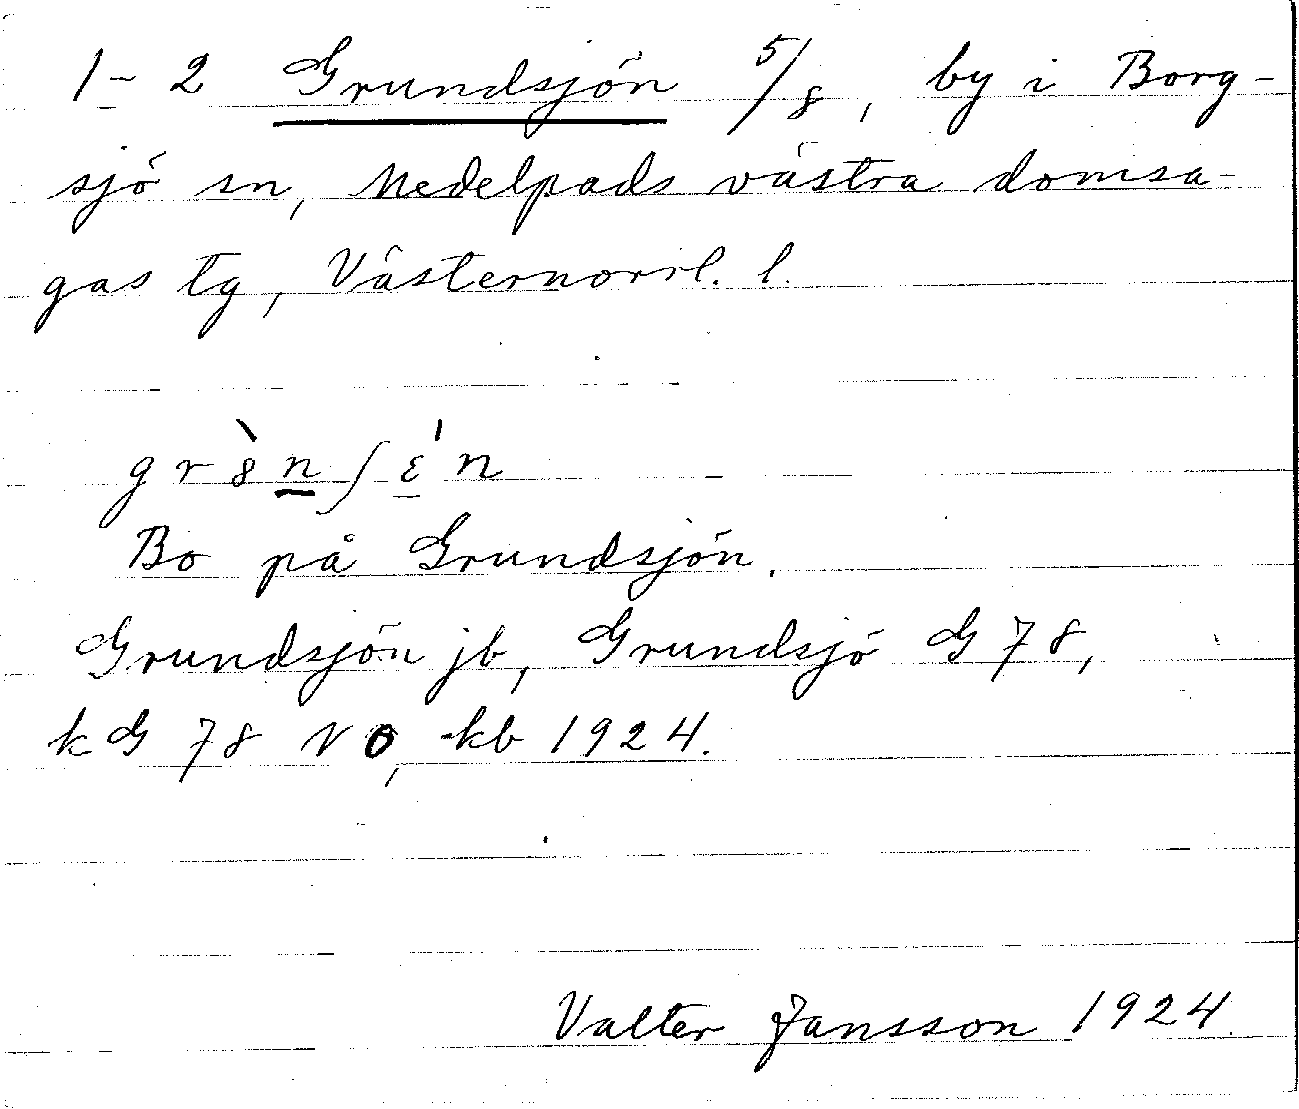 1-2 Grundsjön 5/8, by i Borg-
sjö sn, Medelpads västra domsa-
gas tg, Västernorrl. l.
gr8̀n ʃ ɛ́n
Bo på Grundsjön.
Grundsjön jb, Grundsjö G 78,
k G 78 NO, kb 1924.
Valter Jansson 1924.